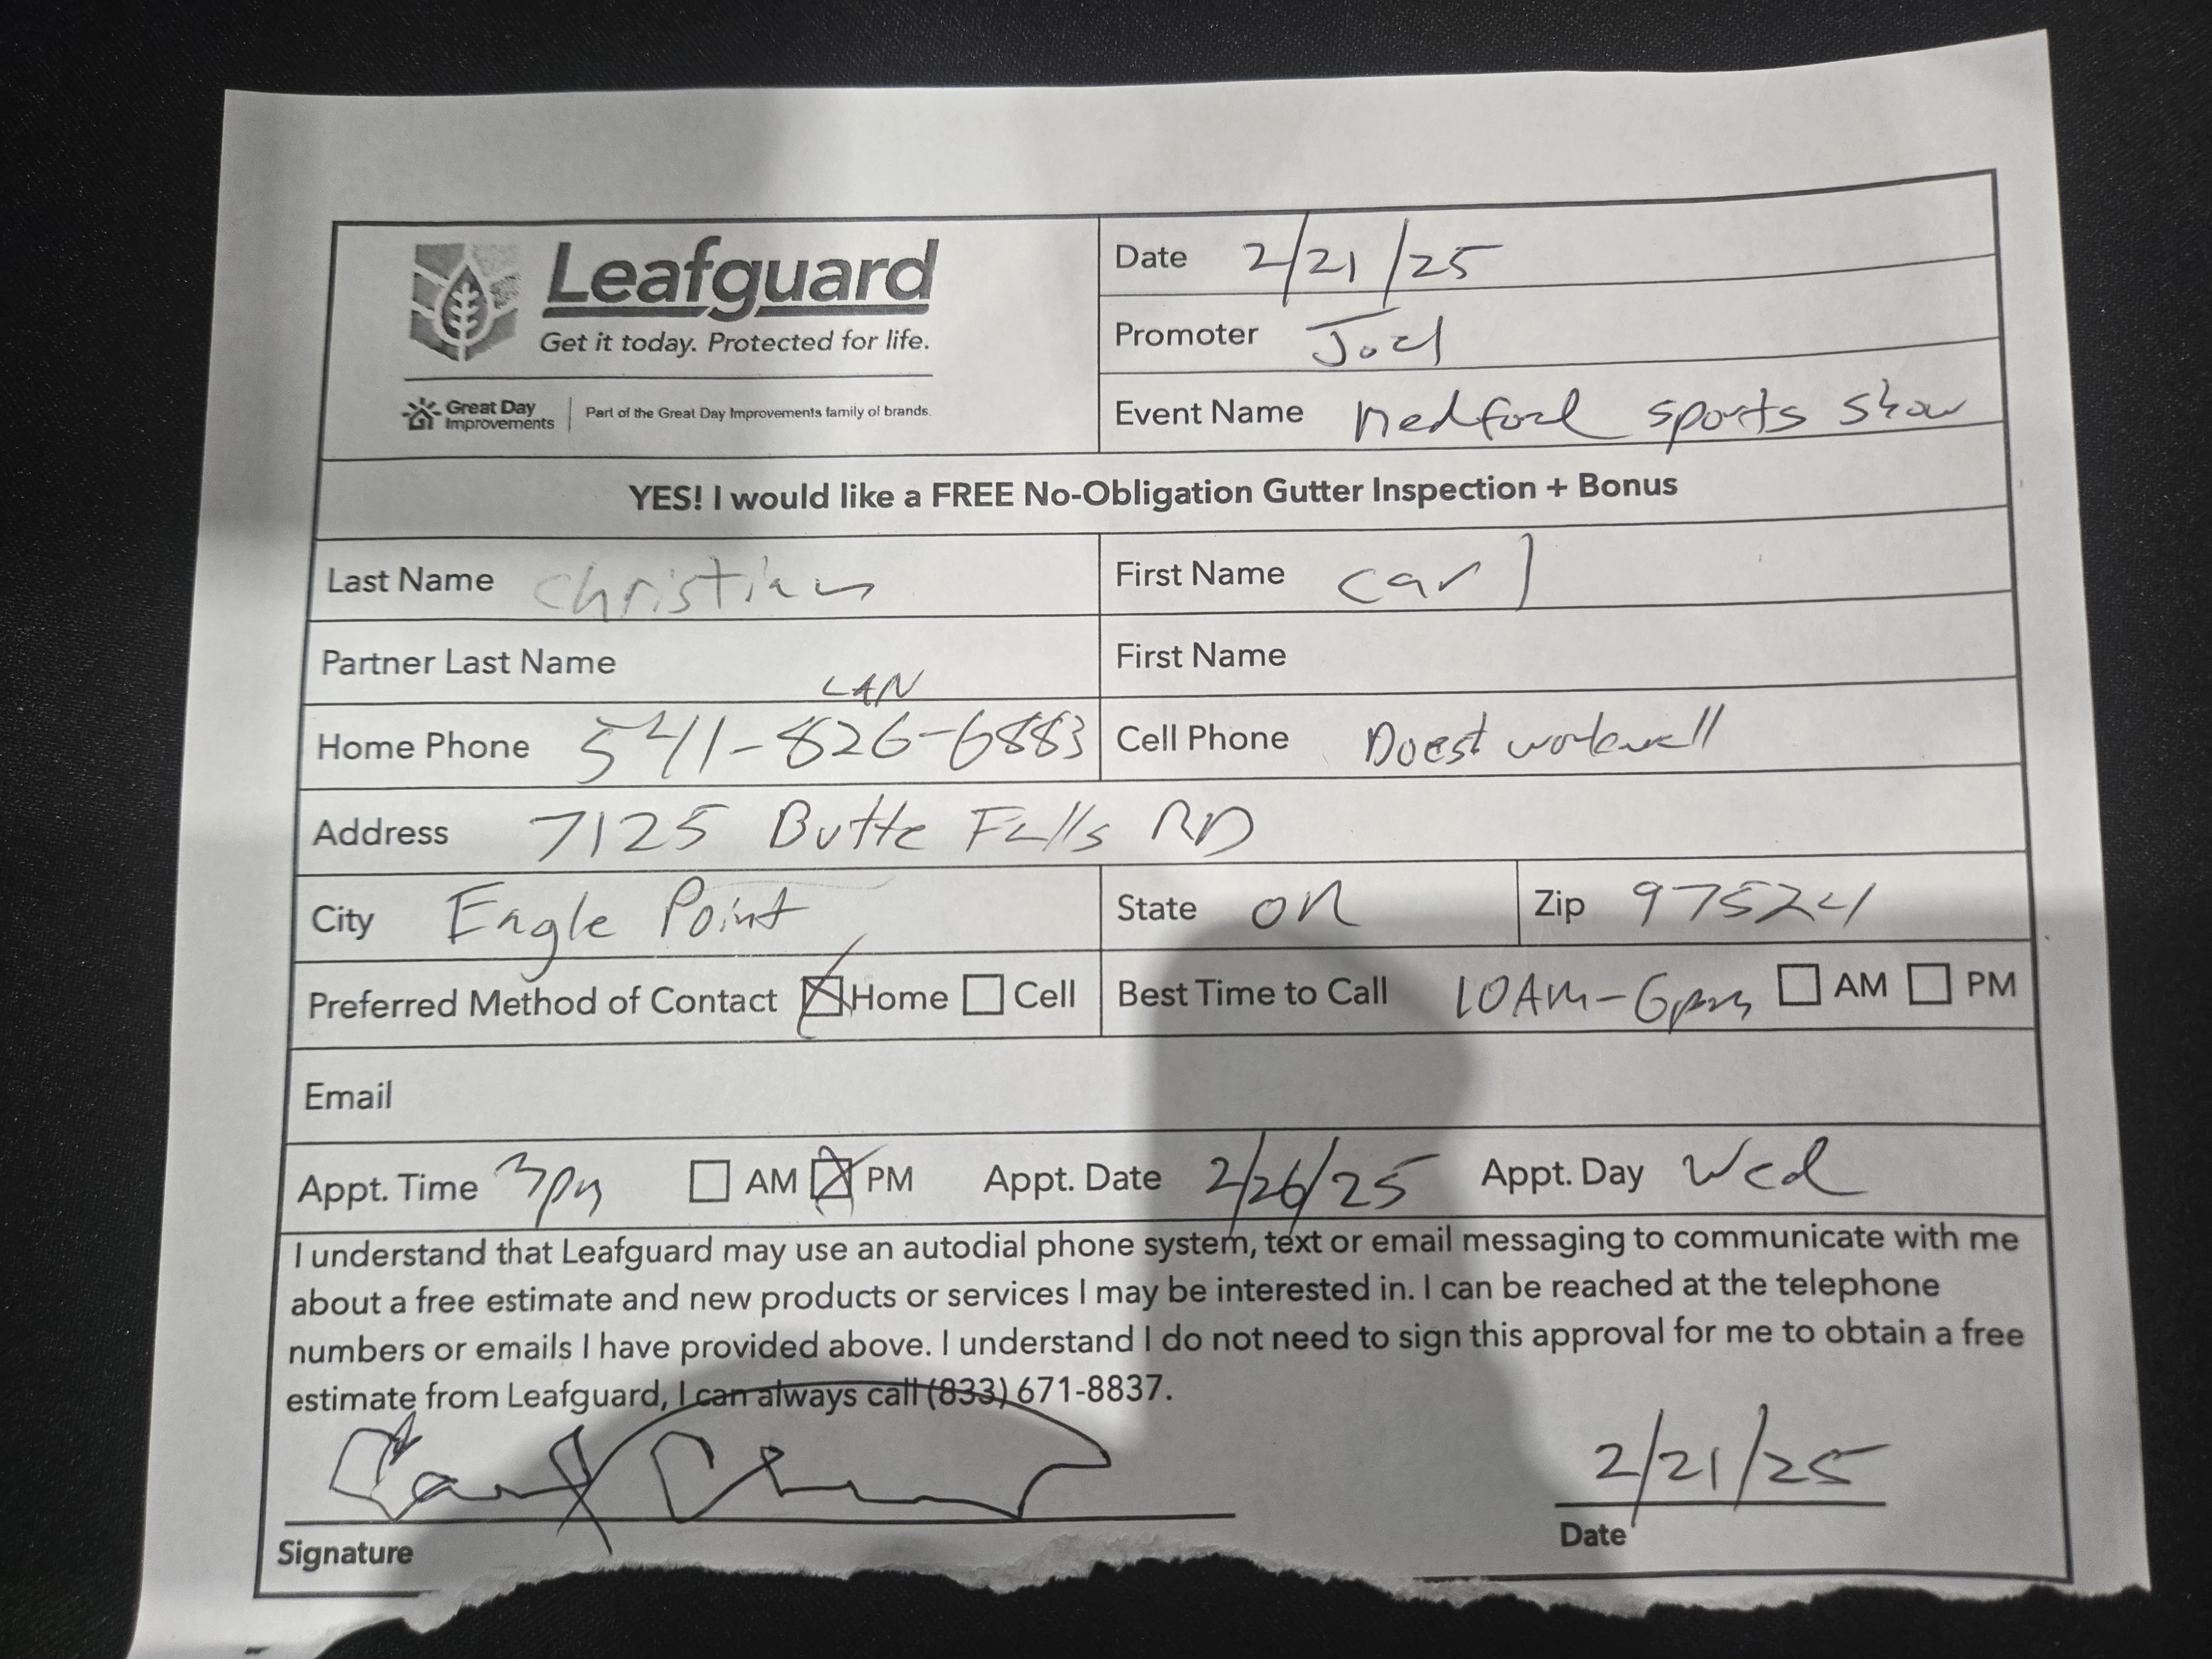 Leafguard
Get it today. Protected for life.
Great Day Improvements | Part of the Great Day Improvements family of brands.
Date 2/21/25
Promoter Joel
Event Name medford sports show
YES! I would like a FREE No-Obligation Gutter Inspection + Bonus
Last Name christian First Name carl
Partner Last Name First Name
LAN
Home Phone 541-826-6883 Cell Phone Doest work well
Address 7125 Butte Falls RD
City Eagle Point State OR Zip 97524
Preferred Method of Contact Home Cell Best Time to Call 10AM-6pm AM PM
Email
Appt. Time 3pm AM PM Appt. Date 2/26/25 Appt. Day Wed
I understand that Leafguard may use an autodial phone system, text or email messaging to communicate with me
about a free estimate and new products or services I may be interested in. I can be reached at the telephone
numbers or emails I have provided above. I understand I do not need to sign this approval for me to obtain a free
estimate from Leafguard, I can always call (833) 671-8837.
2/21/25
Signature Date